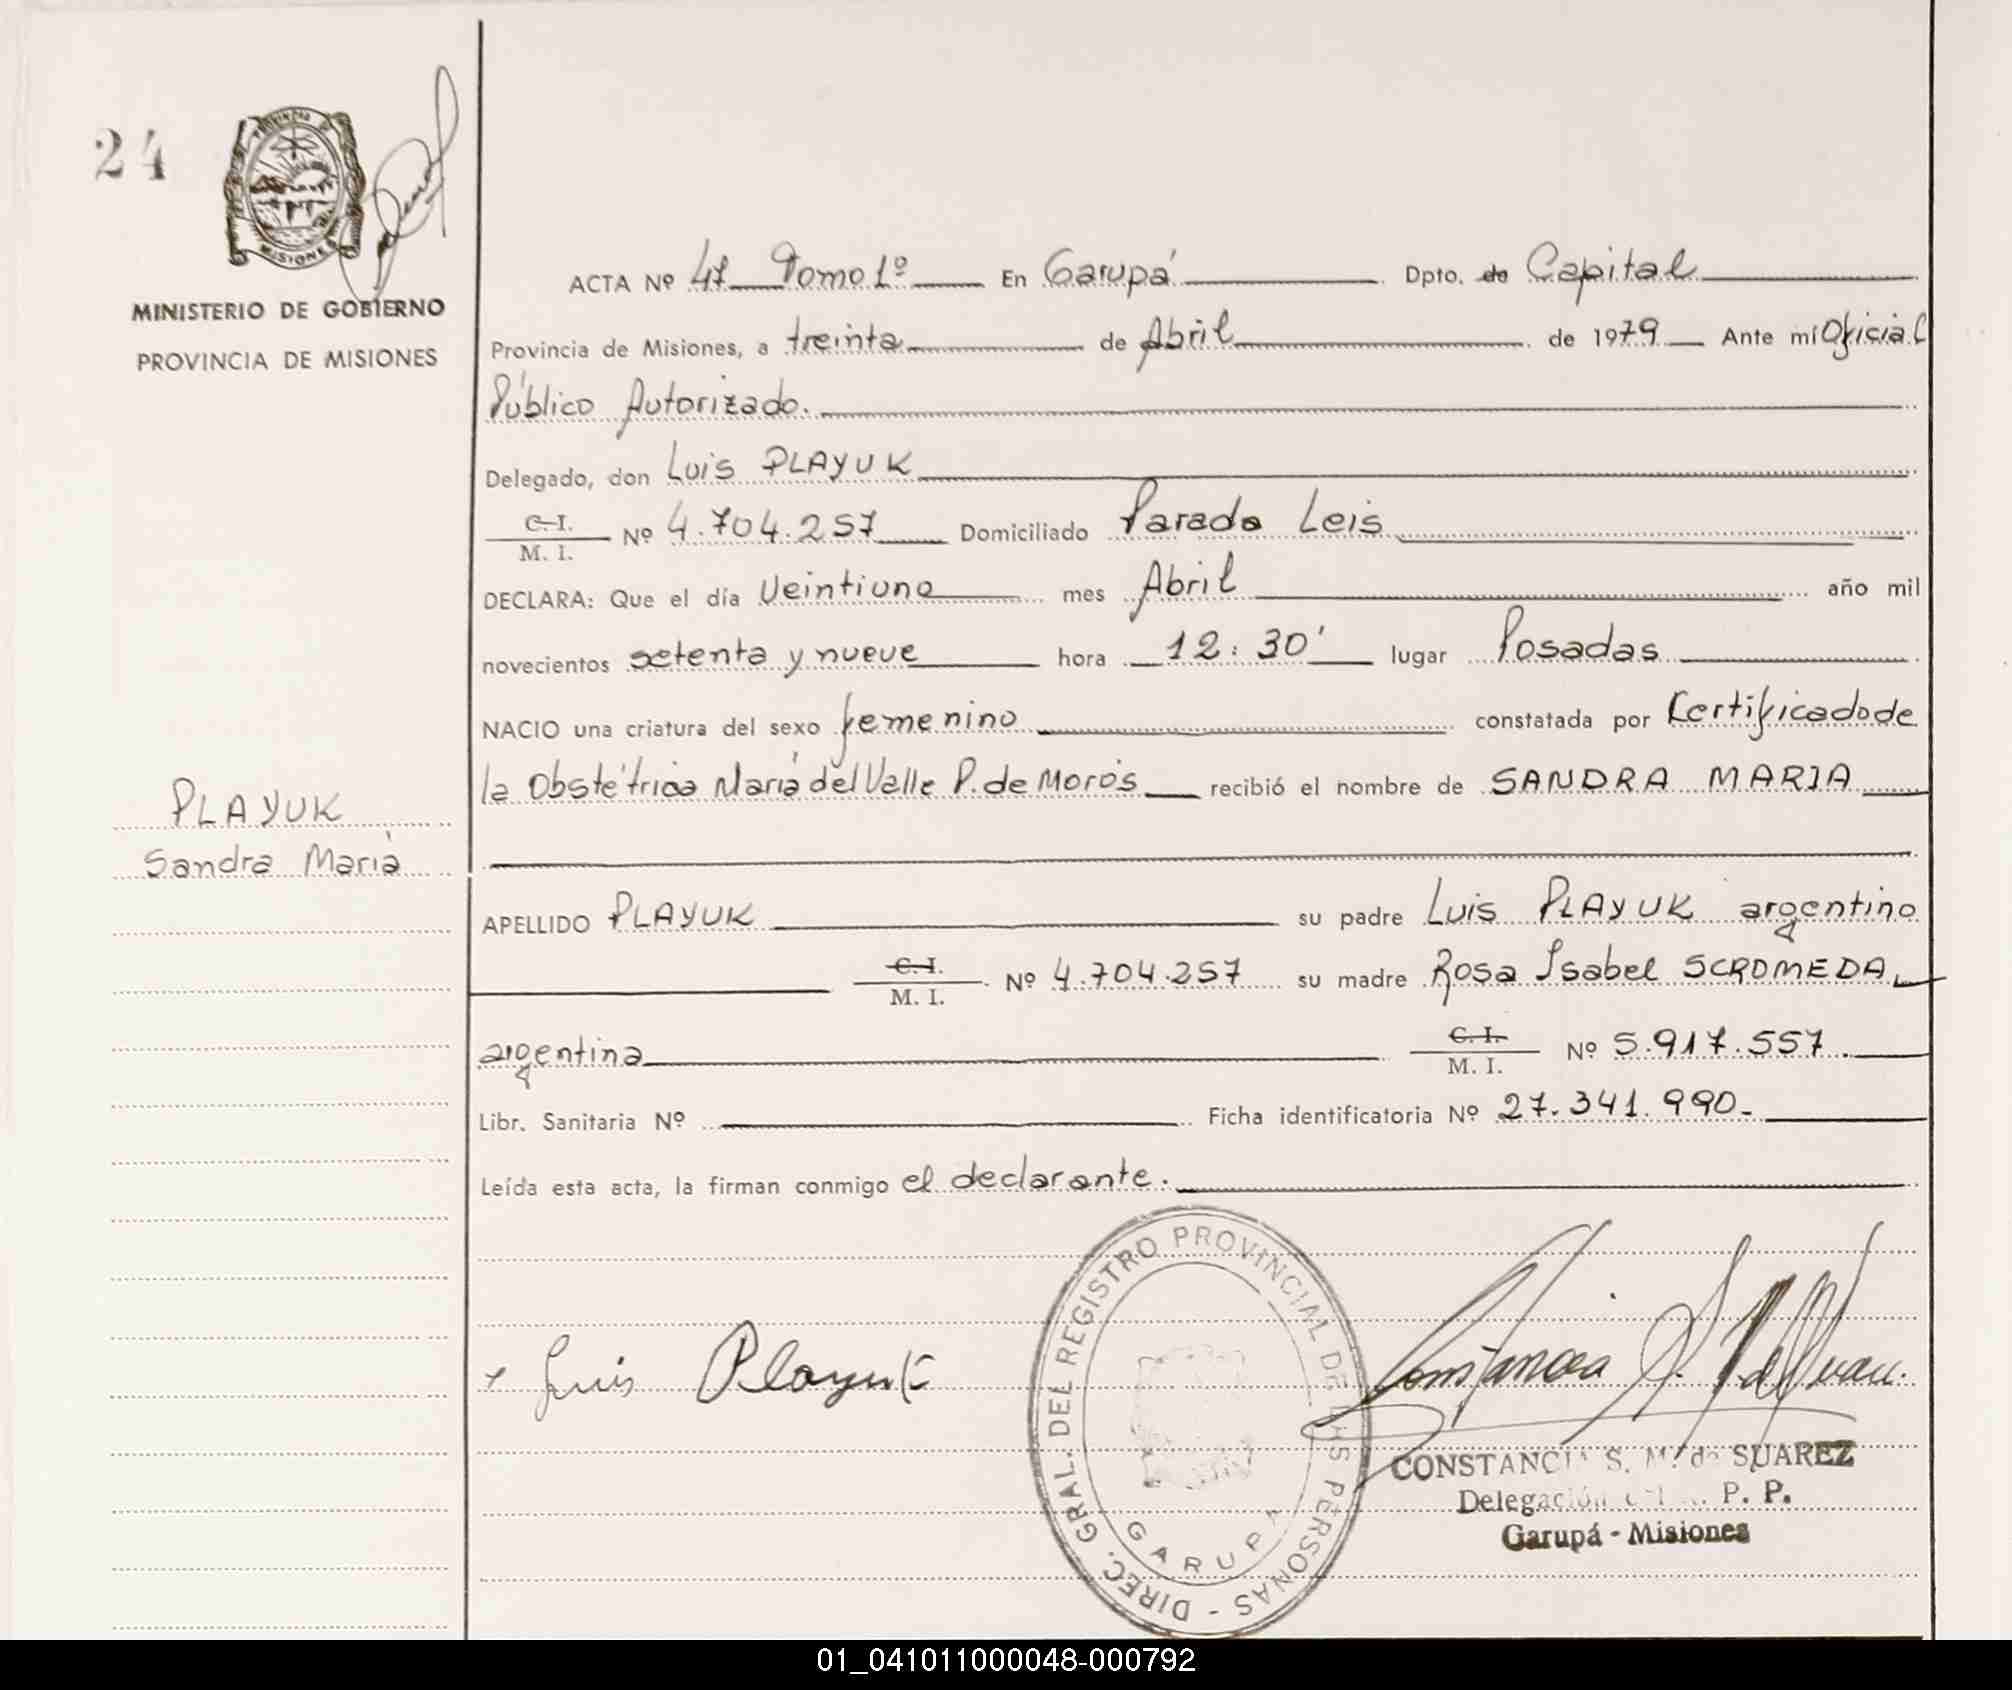 24
PROVINCIA DE
MISIONES
MINISTERIO DE GOBIERNO
PROVINCIA DE MISIONES
ACTA Nº 47 Tomo 1º En Garupá Dpto. de Capital
Provincia de Misiones, a treinta de Abril de 1979 Ante mí Oficial
Público Autorizado.
Delegado, don Luis PLAYUK
C.I.
M. I. Nº 4.704.257 Domiciliado Parada Leis
DECLARA: Que el día Veintiuno mes Abril año mil
novecientos setenta y nueve hora 12:30' lugar Posadas
NACIO una criatura del sexo femenino constatada por Certificado de
la Obstétrica María del Valle P. de Morós recibió el nombre de SANDRA MARIA
PLAYUK
Sandra María
APELLIDO PLAYUK su padre Luis PLAYUK argentino
C.I.
M. I. Nº 4.704.257 su madre Rosa Isabel SCROMEDA
argentina C.I.
M. I. Nº 5.917.557.
Libr. Sanitaria Nº Ficha identificatoria Nº 27.341.990-
Leída esta acta, la firman conmigo el declarante.
Luis Playuk
DIREC. GRAL. DEL REGISTRO PROVINCIAL DE LAS PERSONAS -
GARUPA
Constancia S.
CONSTANCIA S. M. de SUAREZ
Delegación P. P.
Garupá - Misiones
01_041011000048-000792